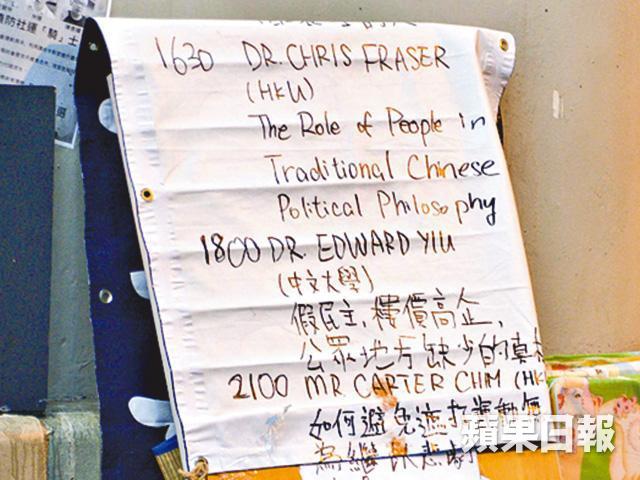 防社運「騎」士
1630 DR. CHRIS FRASER
(HKU)
The Role of People in
Traditional Chinese
Political Philosophy
1800 DR. EDWARD YIU
(中文大學)
假民主,樓價高企,
公眾地方缺少的真相
2100 MR. CARTER CHIM (HK
如何避免遮打運動
為繼
蘋果日報